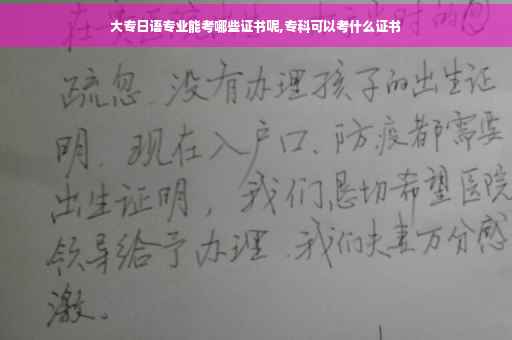 大专日语专业能考哪些证书呢,专科可以考什么证书
疏忽、没有办理孩子的出生证
明、现在入户口、防疫都需要
出生证明，我们恳切希望医院
领导给予办理、我们夫妻万分感
激。